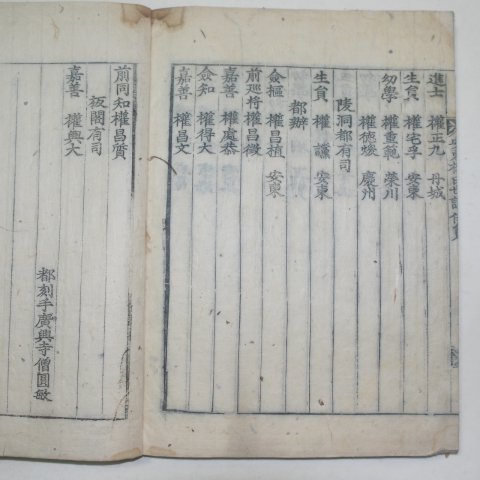 進士 權正九 丹城
生員 權宅孚 安東
幼學 權重範 榮川
權德峻 慶州
陵洞都有司
生員 權 讌 安東
都辦
僉樞 權昌植 安東
前巡將權昌徵
嘉善 權處恭
僉知 權得大
嘉善 權昌文
前同知權昌質
板閣有司
嘉善 權興大
都刻手廣興寺僧圓敏